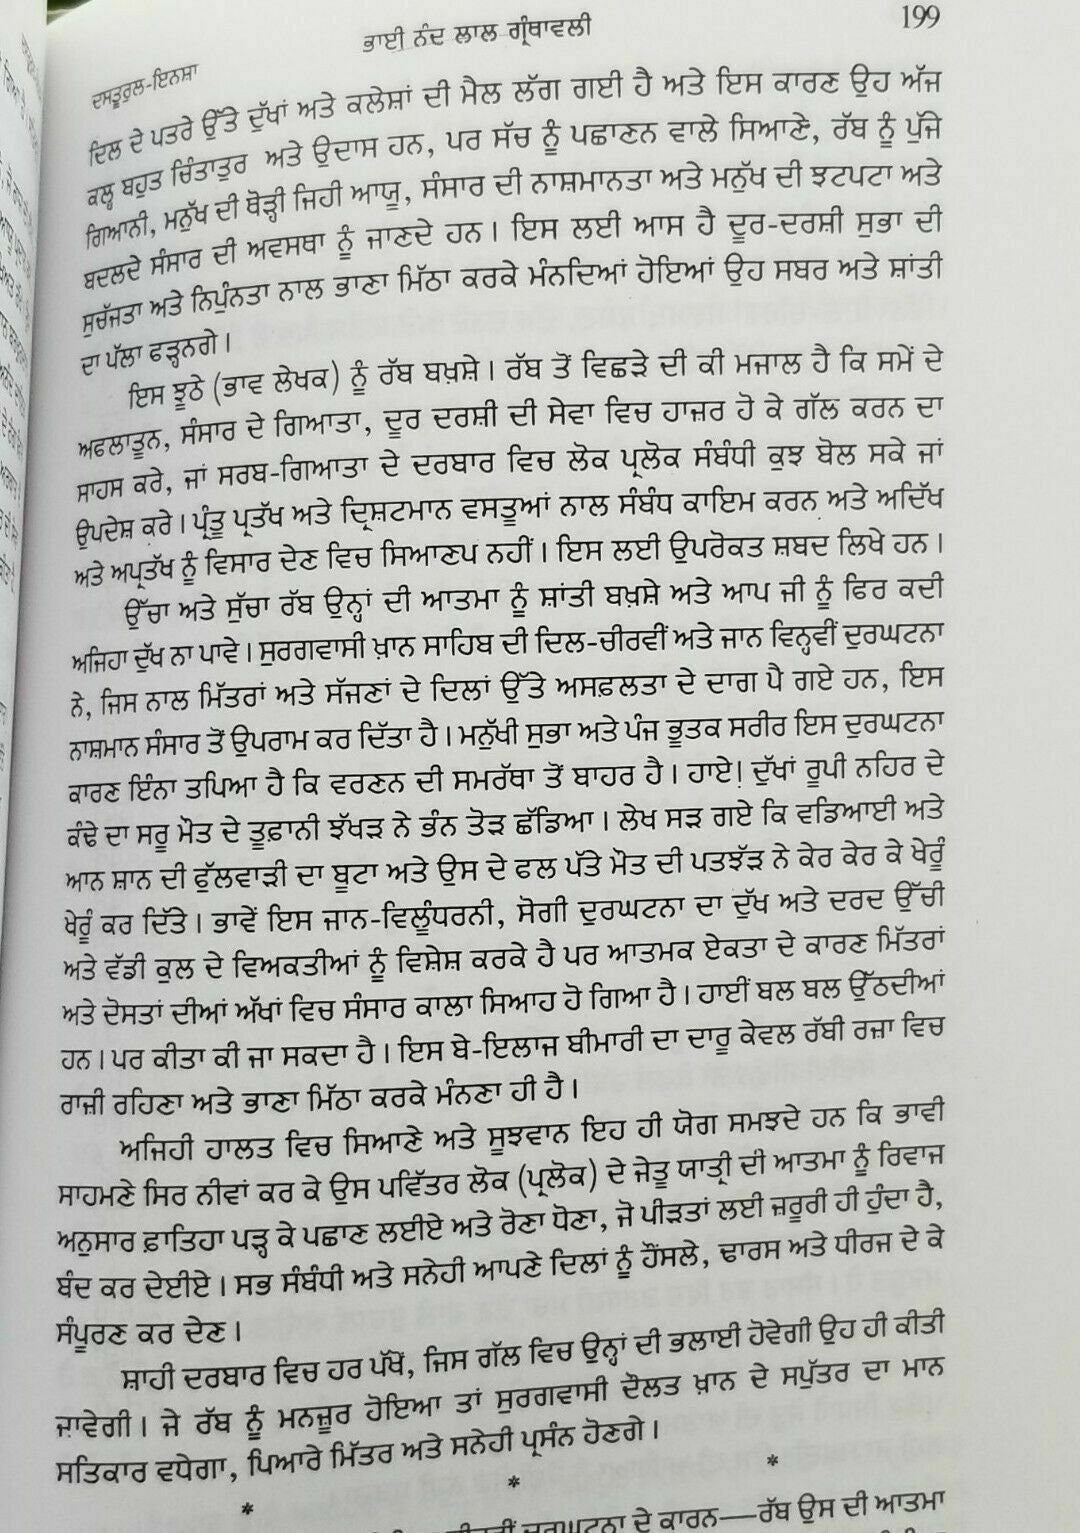 ਭਾਈ ਨੰਦ ਲਾਲ ਗ੍ਰੰਥਾਵਲੀ
199
ਦਸਤੂਰੁਲ-ਇਨਸ਼ਾ
ਦਿਲ ਦੇ ਪਤਰੇ ਉੱਤੇ ਦੁੱਖਾਂ ਅਤੇ ਕਲੇਸ਼ਾਂ ਦੀ ਮੈਲ ਲੱਗ ਗਈ ਹੈ ਅਤੇ ਇਸ ਕਾਰਣ ਉਹ ਅੱਜ
ਕਲ੍ਹ ਬਹੁਤ ਚਿੰਤਾਤੁਰ ਅਤੇ ਉਦਾਸ ਹਨ, ਪਰ ਸੱਚ ਨੂੰ ਪਛਾਣਨ ਵਾਲੇ ਸਿਆਣੇ, ਰੱਬ ਨੂੰ ਪੁੱਜੇ
ਗਿਆਨੀ, ਮਨੁੱਖ ਦੀ ਥੋੜ੍ਹੀ ਜਿਹੀ ਆਯੂ, ਸੰਸਾਰ ਦੀ ਨਾਸ਼ਮਾਨਤਾ ਅਤੇ ਮਨੁੱਖ ਦੀ ਝਟਪਟਾ ਅਤੇ
ਬਦਲਦੇ ਸੰਸਾਰ ਦੀ ਅਵਸਥਾ ਨੂੰ ਜਾਣਦੇ ਹਨ। ਇਸ ਲਈ ਆਸ ਹੈ ਦੂਰ-ਦਰਸ਼ੀ ਸੁਭਾ ਦੀ
ਸੁਚੱਜਤਾ ਅਤੇ ਨਿਪੁੰਨਤਾ ਨਾਲ ਭਾਣਾ ਮਿੱਠਾ ਕਰਕੇ ਮੰਨਦਿਆਂ ਹੋਇਆਂ ਉਹ ਸਬਰ ਅਤੇ ਸ਼ਾਂਤੀ
ਦਾ ਪੱਲਾ ਫੜ੍ਹਨਗੇ।
ਇਸ ਝੂਠੇ (ਭਾਵ ਲੇਖਕ) ਨੂੰ ਰੱਬ ਬਖ਼ਸ਼ੇ। ਰੱਬ ਤੋਂ ਵਿਛੜੇ ਦੀ ਕੀ ਮਜਾਲ ਹੈ ਕਿ ਸਮੇਂ ਦੇ
ਅਫਲਾਤੂਨ, ਸੰਸਾਰ ਦੇ ਗਿਆਤਾ, ਦੂਰ ਦਰਸ਼ੀ ਦੀ ਸੇਵਾ ਵਿਚ ਹਾਜ਼ਰ ਹੋ ਕੇ ਗੱਲ ਕਰਨ ਦਾ
ਸਾਹਸ ਕਰੇ, ਜਾਂ ਸਰਬ-ਗਿਆਤਾ ਦੇ ਦਰਬਾਰ ਵਿਚ ਲੋਕ ਪ੍ਰਲੋਕ ਸੰਬੰਧੀ ਕੁਝ ਬੋਲ ਸਕੇ ਜਾਂ
ਉਪਦੇਸ਼ ਕਰੇ। ਪ੍ਰੰਤੂ ਪ੍ਰਤੱਖ ਅਤੇ ਦ੍ਰਿਸ਼ਟਮਾਨ ਵਸਤੂਆਂ ਨਾਲ ਸੰਬੰਧ ਕਾਇਮ ਕਰਨ ਅਤੇ ਅਦਿੱਖ
ਅਤੇ ਅਪ੍ਰਤੱਖ ਨੂੰ ਵਿਸਾਰ ਦੇਣ ਵਿਚ ਸਿਆਣਪ ਨਹੀਂ। ਇਸ ਲਈ ਉਪਰੋਕਤ ਸ਼ਬਦ ਲਿਖੇ ਹਨ।
ਉੱਚਾ ਅਤੇ ਸੁੱਚਾ ਰੱਬ ਉਨ੍ਹਾਂ ਦੀ ਆਤਮਾ ਨੂੰ ਸ਼ਾਂਤੀ ਬਖ਼ਸ਼ੇ ਅਤੇ ਆਪ ਜੀ ਨੂੰ ਫਿਰ ਕਦੀ
ਅਜਿਹਾ ਦੁੱਖ ਨਾ ਪਾਵੇ। ਸੁਰਗਵਾਸੀ ਖ਼ਾਨ ਸਾਹਿਬ ਦੀ ਦਿਲ-ਚੀਰਵੀਂ ਅਤੇ ਜਾਨ ਵਿਨ੍ਹਵੀਂ ਦੁਰਘਟਨਾ
ਨੇ, ਜਿਸ ਨਾਲ ਮਿੱਤਰਾਂ ਅਤੇ ਸੱਜਣਾਂ ਦੇ ਦਿਲਾਂ ਉੱਤੇ ਅਸਫ਼ਲਤਾ ਦੇ ਦਾਗ ਪੈ ਗਏ ਹਨ, ਇਸ
ਨਾਸ਼ਮਾਨ ਸੰਸਾਰ ਤੋਂ ਉਪਰਾਮ ਕਰ ਦਿੱਤਾ ਹੈ। ਮਨੁੱਖੀ ਸੁਭਾ ਅਤੇ ਪੰਜ ਭੂਤਕ ਸਰੀਰ ਇਸ ਦੁਰਘਟਨਾ
ਕਾਰਣ ਇੰਨਾ ਤਪਿਆ ਹੈ ਕਿ ਵਰਣਨ ਦੀ ਸਮਰੱਥਾ ਤੋਂ ਬਾਹਰ ਹੈ। ਹਾਏ! ਦੁੱਖਾਂ ਰੂਪੀ ਨਹਿਰ ਦੇ
ਕੰਢੇ ਦਾ ਸਰੂ ਮੌਤ ਦੇ ਤੂਫ਼ਾਨੀ ਝੱਖੜ ਨੇ ਭੰਨ ਤੋੜ ਛੱਡਿਆ। ਲੇਖ ਸੜ ਗਏ ਕਿ ਵਡਿਆਈ ਅਤੇ
ਆਨ ਸ਼ਾਨ ਦੀ ਫੁੱਲਵਾੜੀ ਦਾ ਬੂਟਾ ਅਤੇ ਉਸ ਦੇ ਫਲ ਪੱਤੇ ਮੌਤ ਦੀ ਪਤਝੱੜ ਨੇ ਕੇਰ ਕੇਰ ਕੇ ਖੇਰੂੰ
ਖੇਰੂੰ ਕਰ ਦਿੱਤੇ। ਭਾਵੇਂ ਇਸ ਜਾਨ-ਵਿਲੂੰਧਰਨੀ, ਸੋਗੀ ਦੁਰਘਟਨਾ ਦਾ ਦੁੱਖ ਅਤੇ ਦਰਦ ਉੱਚੀ
ਅਤੇ ਵੱਡੀ ਕੁਲ ਦੇ ਵਿਅਕਤੀਆਂ ਨੂੰ ਵਿਸ਼ੇਸ਼ ਕਰਕੇ ਹੈ ਪਰ ਆਤਮਕ ਏਕਤਾ ਦੇ ਕਾਰਣ ਮਿੱਤਰਾਂ
ਅਤੇ ਦੋਸਤਾਂ ਦੀਆਂ ਅੱਖਾਂ ਵਿਚ ਸੰਸਾਰ ਕਾਲਾ ਸਿਆਹ ਹੋ ਗਿਆ ਹੈ। ਹਾਈਂ ਬਲ ਬਲ ਉੱਠਦੀਆਂ
ਹਨ। ਪਰ ਕੀਤਾ ਕੀ ਜਾ ਸਕਦਾ ਹੈ। ਇਸ ਬੇ-ਇਲਾਜ ਬੀਮਾਰੀ ਦਾ ਦਾਰੂ ਕੇਵਲ ਰੱਬੀ ਰਜ਼ਾ ਵਿਚ
ਰਾਜ਼ੀ ਰਹਿਣਾ ਅਤੇ ਭਾਣਾ ਮਿੱਠਾ ਕਰਕੇ ਮੰਨਣਾ ਹੀ ਹੈ।
ਅਜਿਹੀ ਹਾਲਤ ਵਿਚ ਸਿਆਣੇ ਅਤੇ ਸੂਝਵਾਨ ਇਹ ਹੀ ਯੋਗ ਸਮਝਦੇ ਹਨ ਕਿ ਭਾਵੀ
ਸਾਹਮਣੇ ਸਿਰ ਨੀਵਾਂ ਕਰ ਕੇ ਉਸ ਪਵਿੱਤਰ ਲੋਕ (ਪ੍ਰਲੋਕ) ਦੇ ਜੇਤੂ ਯਾਤ੍ਰੀ ਦੀ ਆਤਮਾ ਨੂੰ ਰਿਵਾਜ
ਅਨੁਸਾਰ ਫ਼ਾਤਿਹਾ ਪੜ੍ਹ ਕੇ ਪਛਾਣ ਲਈਏ ਅਤੇ ਰੋਣਾ ਧੋਣਾ, ਜੋ ਪੀੜਤਾਂ ਲਈ ਜ਼ਰੂਰੀ ਹੀ ਹੁੰਦਾ ਹੈ,
ਬੰਦ ਕਰ ਦੇਈਏ। ਸਭ ਸੰਬੰਧੀ ਅਤੇ ਸਨੇਹੀ ਆਪਣੇ ਦਿਲਾਂ ਨੂੰ ਹੌਂਸਲੇ, ਢਾਰਸ ਅਤੇ ਧੀਰਜ ਦੇ ਕੇ
ਸੰਪੂਰਣ ਕਰ ਦੇਣ।
ਸ਼ਾਹੀ ਦਰਬਾਰ ਵਿਚ ਹਰ ਪੱਖੋਂ, ਜਿਸ ਗੱਲ ਵਿਚ ਉਨ੍ਹਾਂ ਦੀ ਭਲਾਈ ਹੋਵੇਗੀ ਉਹ ਹੀ ਕੀਤੀ
ਜਾਵੇਗੀ। ਜੇ ਰੱਬ ਨੂੰ ਮਨਜ਼ੂਰ ਹੋਇਆ ਤਾਂ ਸੁਰਗਵਾਸੀ ਦੌਲਤ ਖ਼ਾਨ ਦੇ ਸਪੁੱਤਰ ਦਾ ਮਾਨ
ਸਤਿਕਾਰ ਵਧੇਗਾ, ਪਿਆਰੇ ਮਿੱਤਰ ਅਤੇ ਸਨੇਹੀ ਪ੍ਰਸੰਨ ਹੋਣਗੇ।
* * *
ਦੁਰਘਟਨਾ ਦੇ ਕਾਰਨ—ਰੱਬ ਉਸ ਦੀ ਆਤਮਾ